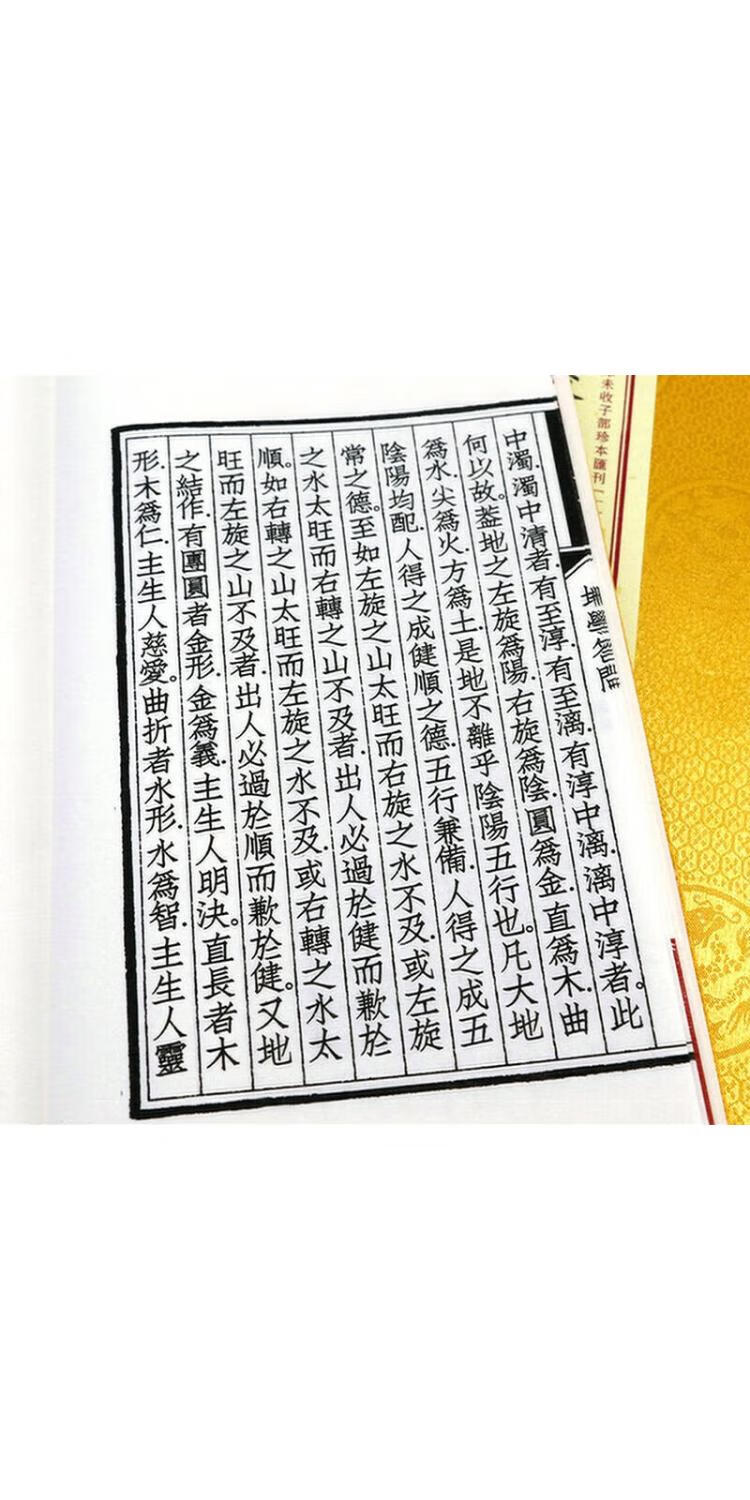 中濁.濁中清者.有至淳.有至漓.有淳中漓.漓中淳者。此
何以故。葢地之左旋為陽.右旋為陰.圓為金.直為木.曲
為水.尖為火.方為土.是地不離乎陰陽五行也。凡大地
陰陽均配.人得之成健順之德.五行兼備.人得之成五
常之德。至如左旋之山太旺而右旋之水不及.或左旋
之水太旺而右轉之山不及者.出人必過於健而歉於
順。如右轉之山太旺而左旋之水不及.或右轉之水太
旺而左旋之山不及者.出人必過於順而歉於健。又地
之結作.有團圓者金形.金為義.主生人明決。直長者木
形.木為仁.主生人慈愛。曲折者水形.水為智.主生人靈
未收子部珍本匯刊